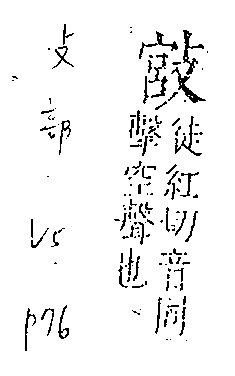 徒紅切音同
擊空聲也
攴部 V5 p76